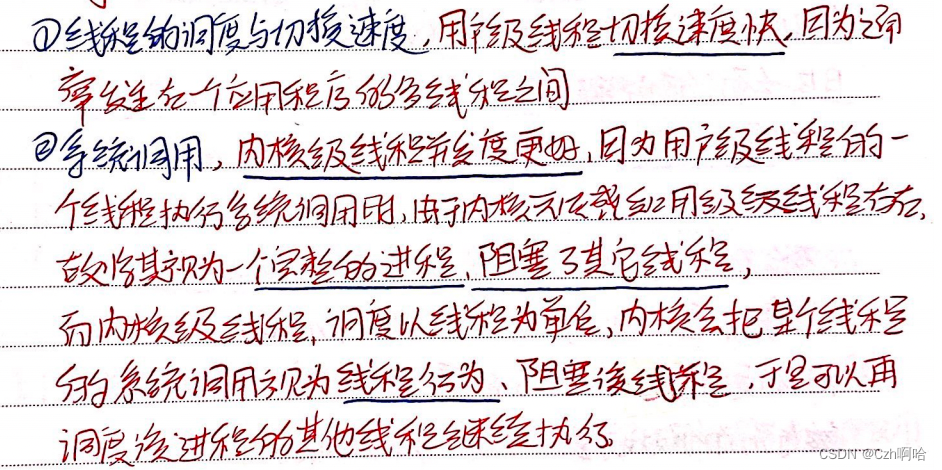 ①线程的调度与切换速度，用户级线程切换速度快，因为通
常发生在一个应用程序的多线程之间
②系统调用，内核级线程并发度更好，因为用户级线程的一
个线程执行系统调用时，由于内核无法感知用户级线程存在，
故将其视为一个完整的进程，阻塞了其它线程，
而内核级线程，调度以线程为单位，内核会把某个线程
的系统调用视为线程行为、阻塞该线程，于是可以再
调度该进程的其他线程继续执行。
CSDN @Czh啊哈